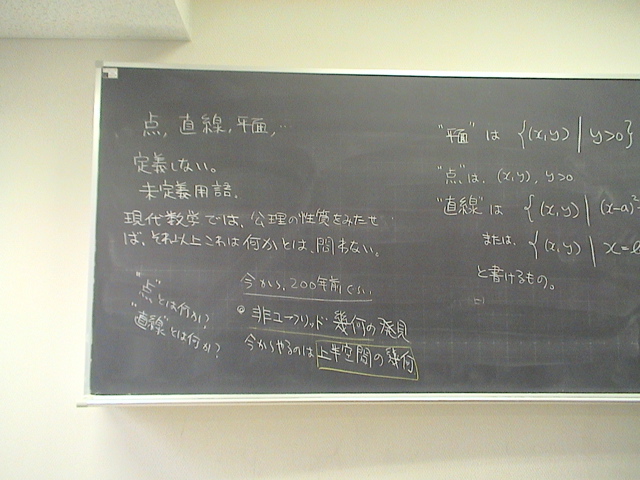 点, 直線, 平面, …
定義しない。
未定義用語.
現代数学では、公理の性質をみたせ
ば、それ以上これは何かとは、問わない。
"点"とは何か?
"直線"とは何か?
今から、200年前くらい
非ユークリッド幾何の発見
今からやるのは 上半空間の幾何
"平面" は {(x,y) | y>0}
"点" は, (x,y), y>0
"直線" は { (x,y) | (x-a)²
または, { (x,y) | x=a
と書けるもの。